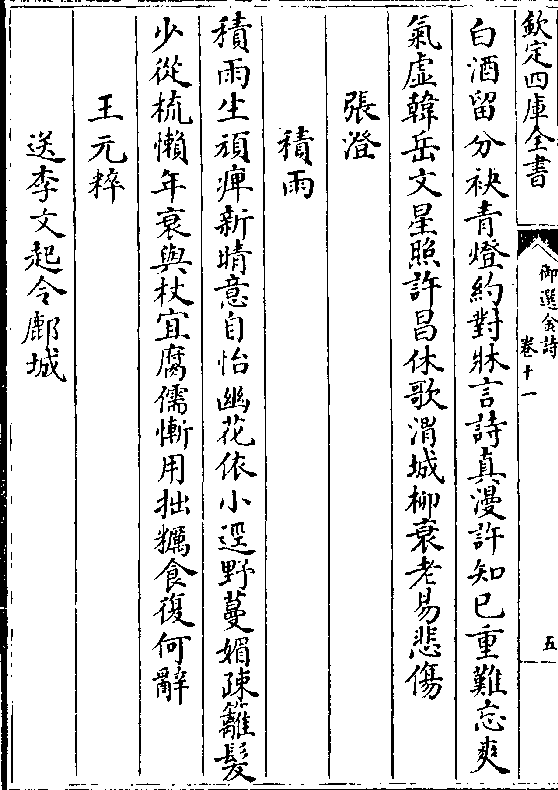 欽定四庫全書
御選金詩
卷十一
五
白酒留分袂青燈約對牀言詩真漫許知已重難忘爽
氣虛韓岳文星照許昌休歌渭城柳衰老易悲傷
張澄
積雨
積雨生頑痺新晴意自怡幽花依小逕野蔓媚疎籬髮
少從梳懶年衰與杖宜腐儒慚用拙糲食復何辭
王元粹
送李文起令鄜城